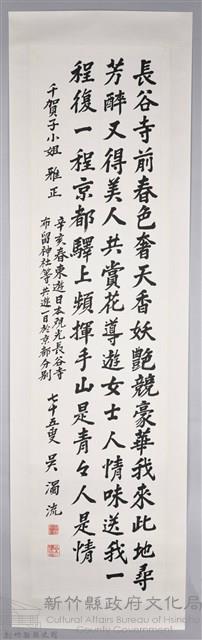 長谷寺前春色奢天香妖艷競豪華我來此地尋
芳醉又得美人共賞花導遊女士人情味送我一
程復一程京都驛上頻揮手山是青々人是情
千賀子小姐 雅正
辛亥春東遊日本觀光長谷寺
布留神社等共遊一日於京都分別
七十五叟 吳濁流
新竹縣政府文化局
Cultural Affairs Bureau of Hsinchu
County Government